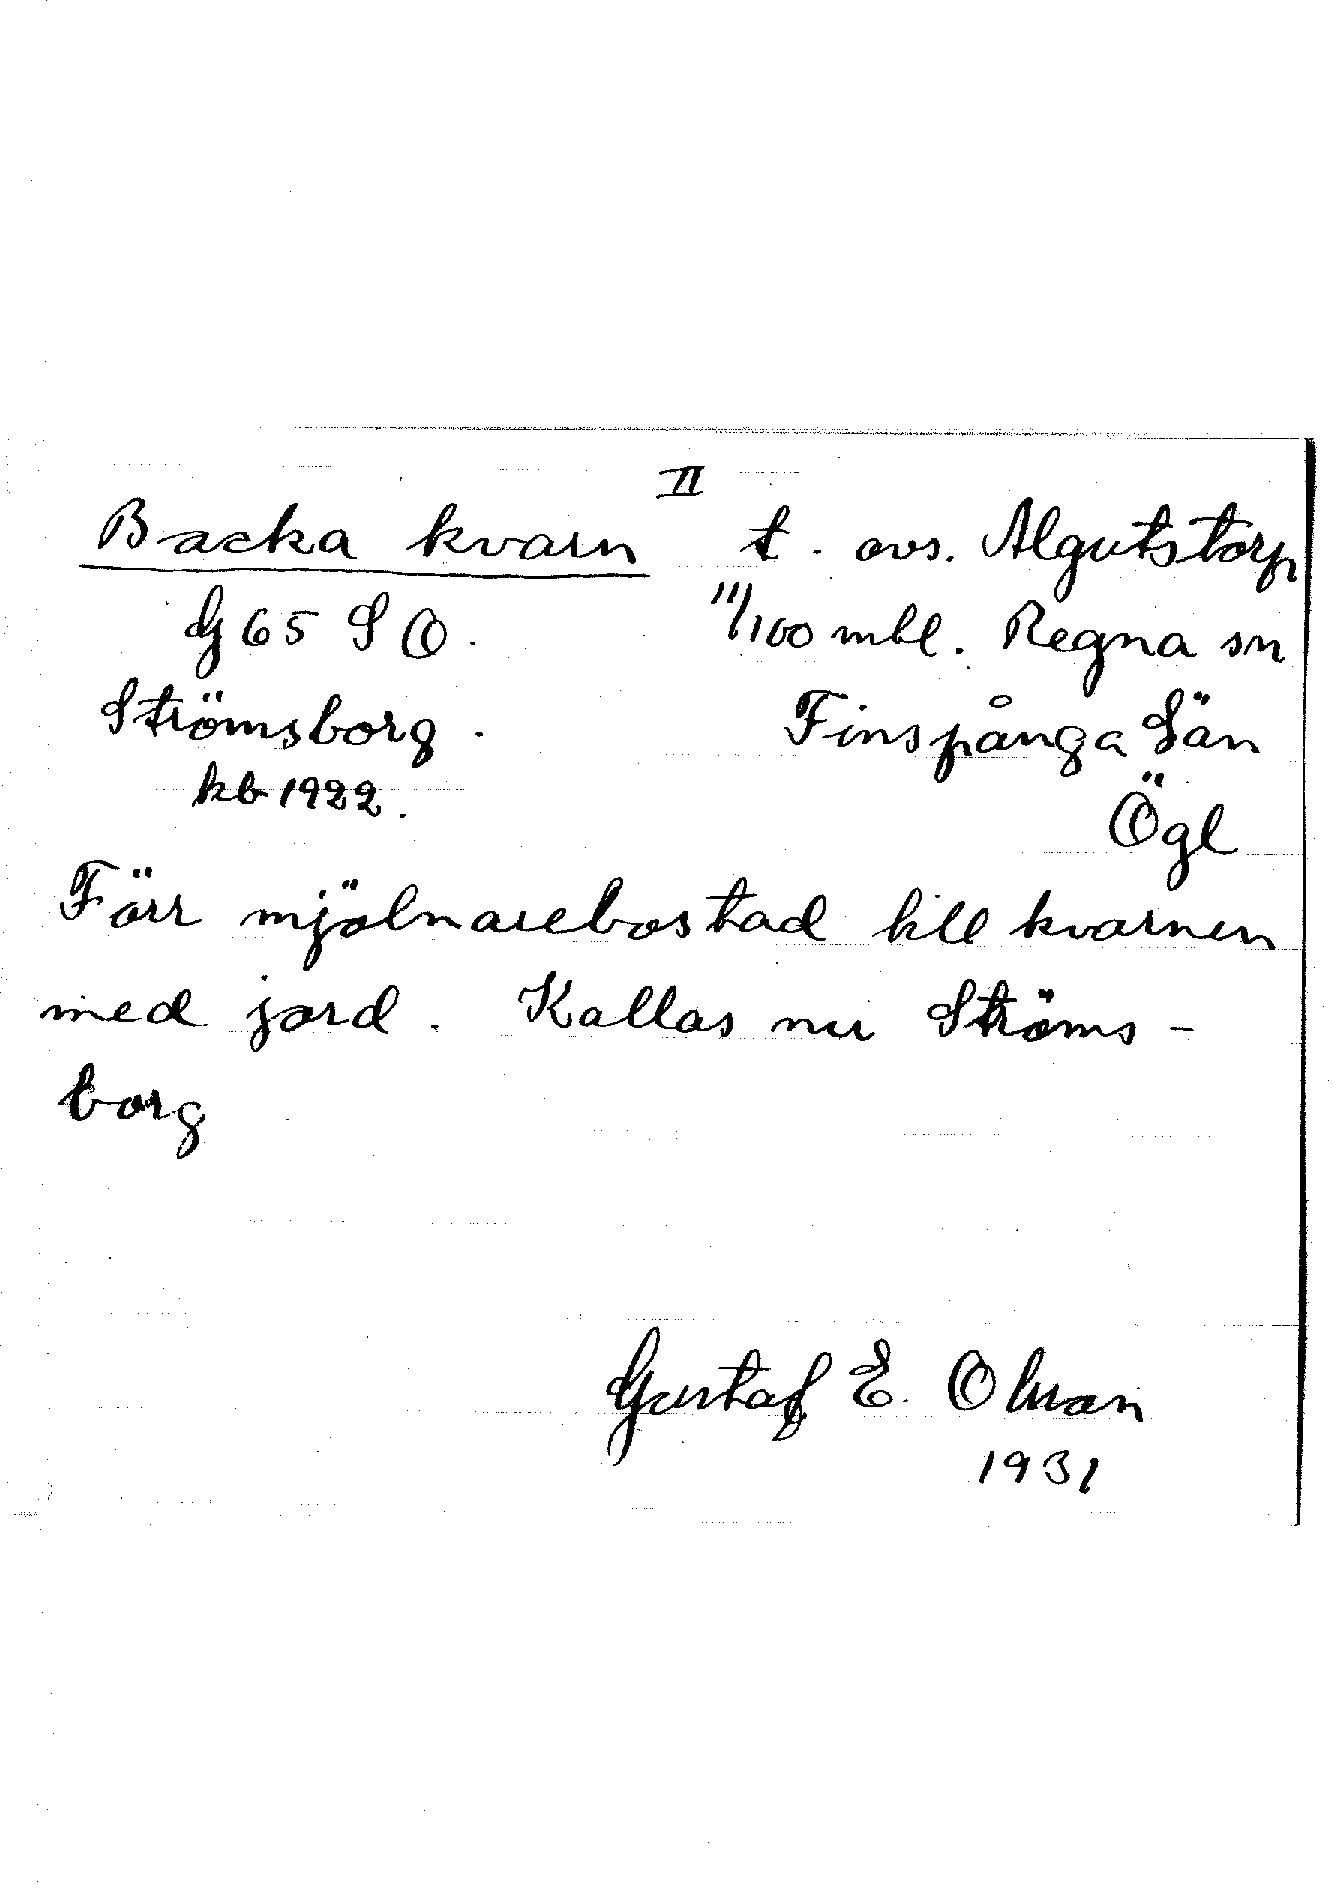 II
Backa kvarn t. avs. Algutstorp
G 65 SO. 11/100 mbl. Regna sn
Strömsborg. Finspånga Län
kb 1922. Ögl
Förr mjölnarebostad till kvarnen
med jord. Kallas nu Ströms-
borg
Gustaf E. Olsson
1931